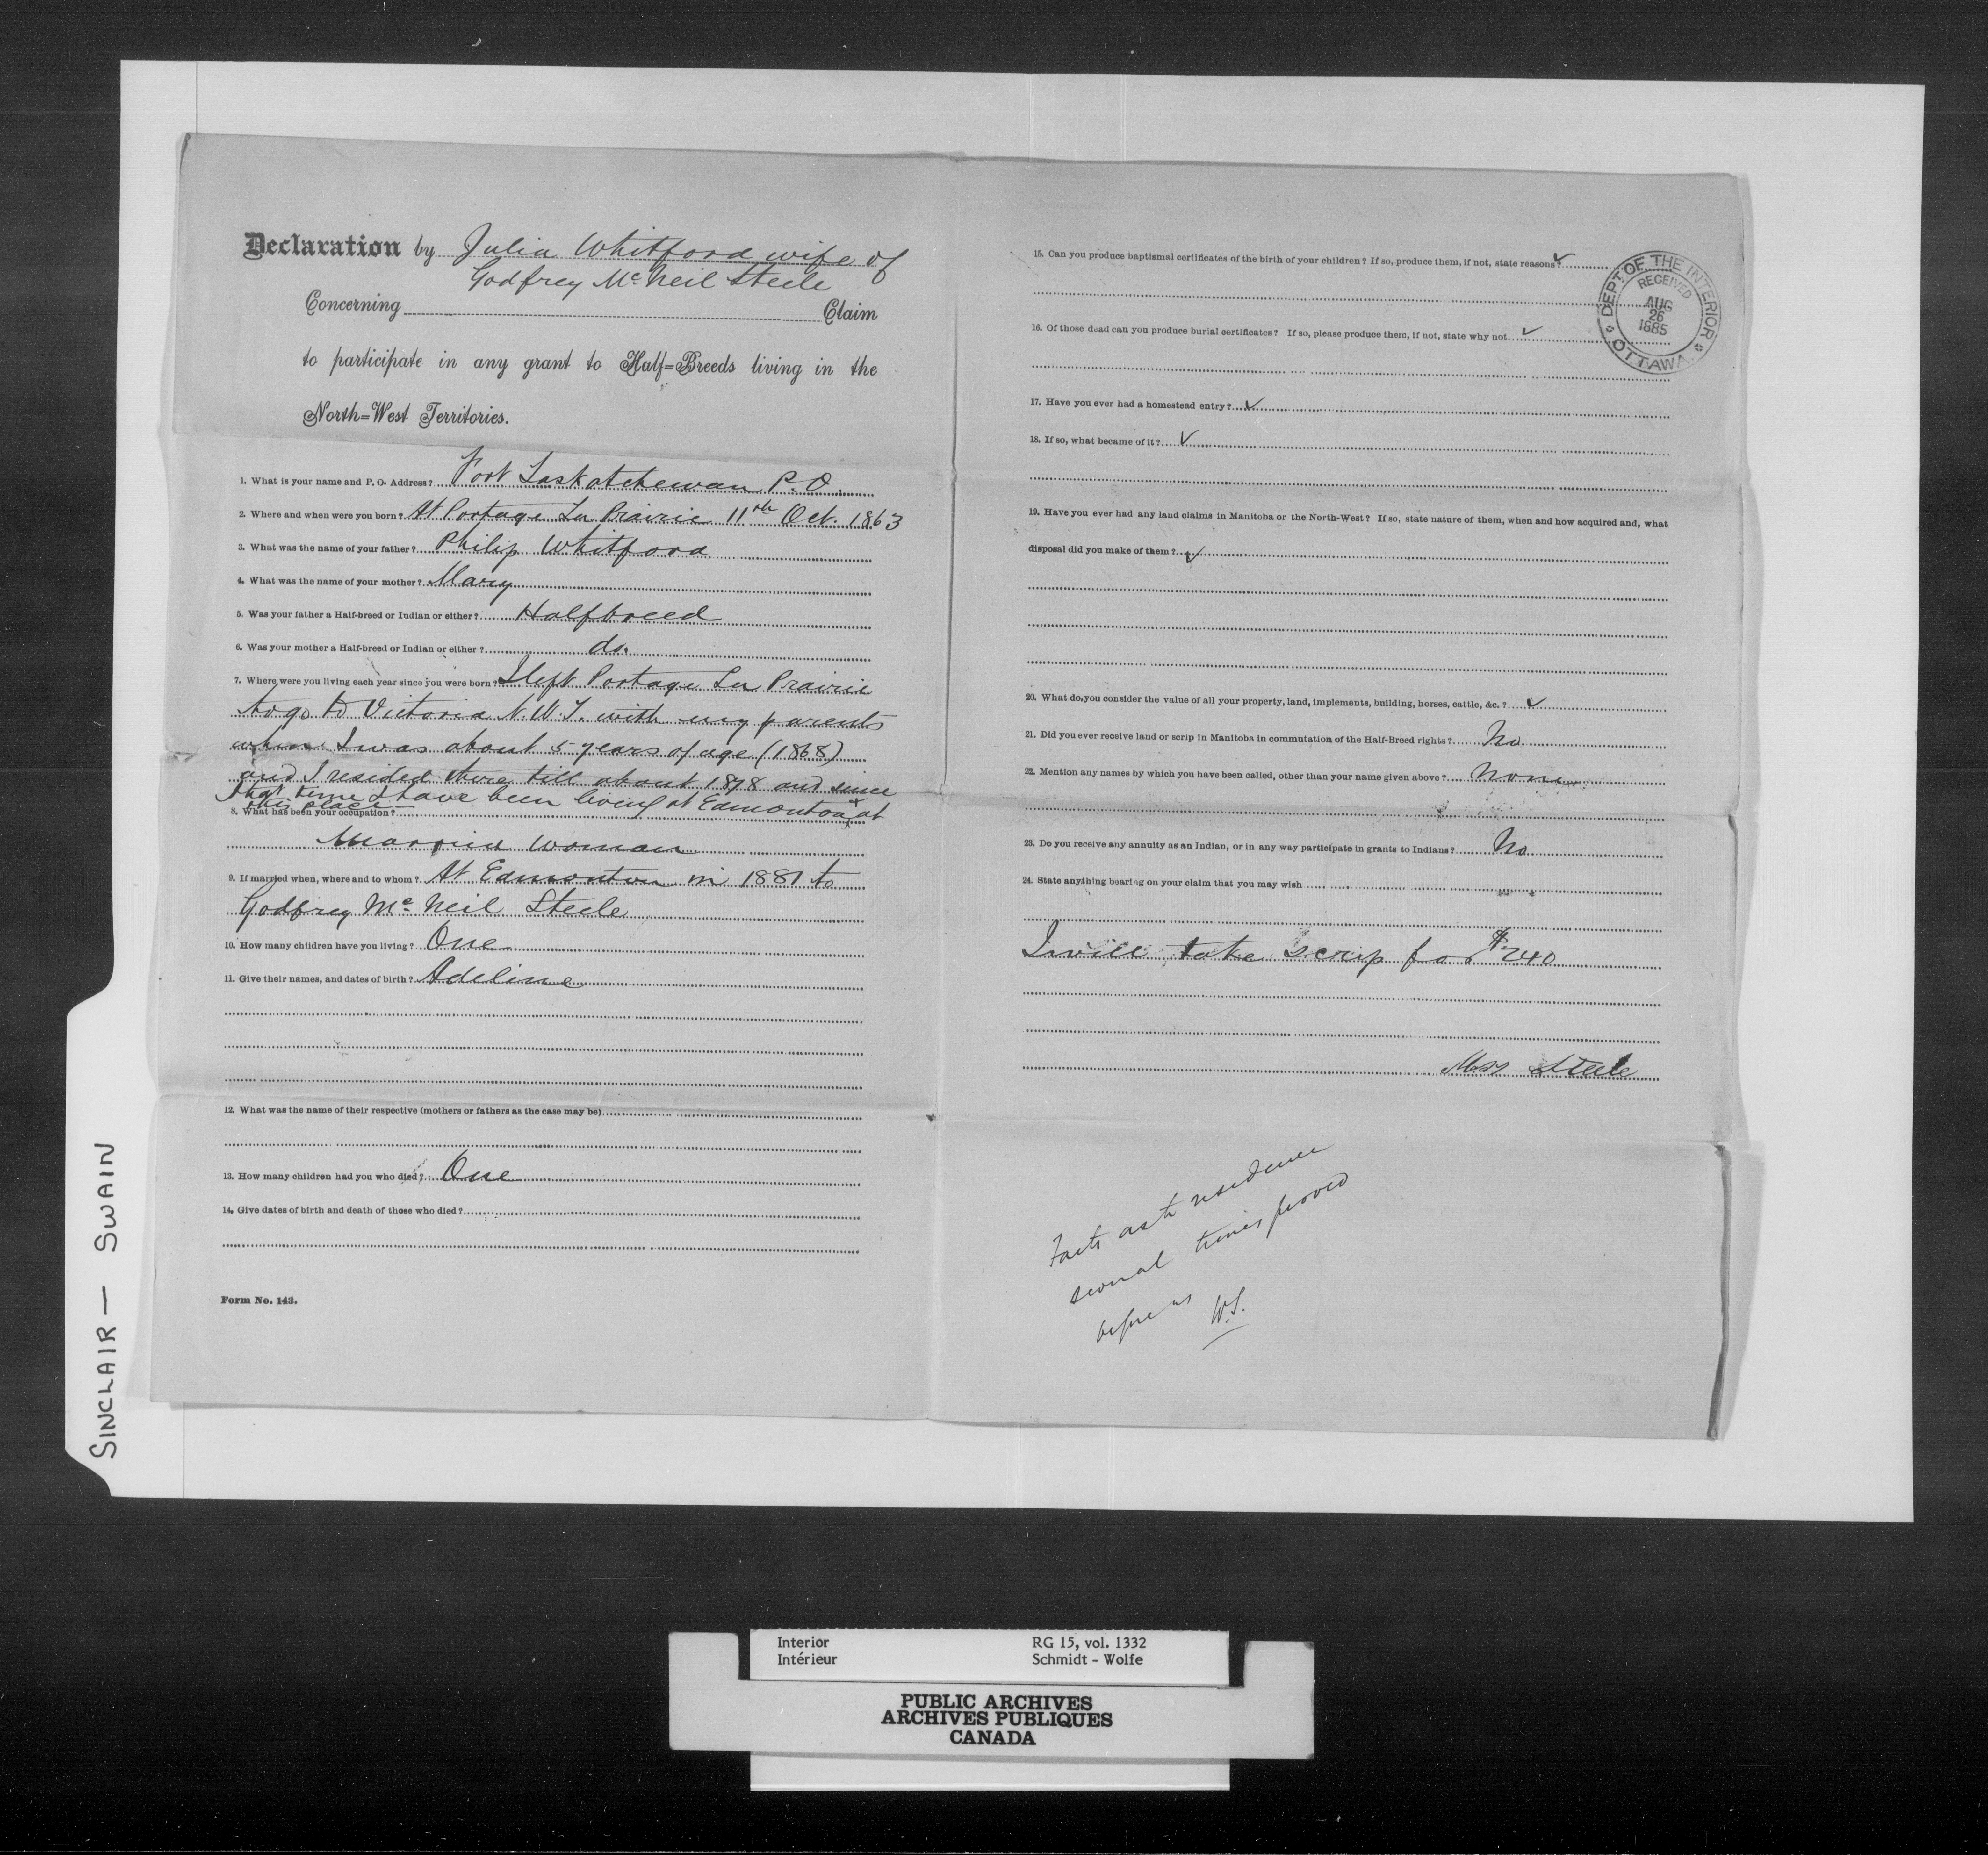 Declaration by Julia Whitford wife of
Godfrey McNeil Steele
Concerning Claim
to participate in any grant to Half=Breeds living in the
North=West Territories.
1. What is your name and P. O. Address? Fort Saskatchewan P.O.
2. Where and when were you born? At Portage La Prairie 11th Oct. 1863
3. What was the name of your father? Philip Whitford
4. What was the name of your mother? Mary
5. Was your father a Half-breed or Indian or either? Halfbreed
6. Was your mother a Half-breed or Indian or either? do.
7. Where were you living each year since you were born? I left Portage La Prairie
to go to Victoria N.W.T. with my parents
when I was about 5 years of age (1868)
and I resided there till about 1878 and since
that time I have been living at Edmonton & at
this place
8. What has been your occupation?
Married woman
9. If married when, where and to whom? At Edmonton in 1881 to
Godfrey McNeil Steele
10. How many children have you living? One
11. Give their names, and dates of birth? Adeline
12. What was the name of their respective (mothers or fathers as the case may be)
13. How many children had you who died? One
14. Give dates of birth and death of those who died?
Form No. 143.
15. Can you produce baptismal certificates of the birth of your children? If so, produce them, if not, state reasons? ✓
16. Of those dead can you produce burial certificates? If so, please produce them, if not, state why not. ✓
17. Have you ever had a homestead entry? ✓
18. If so, what became of it? ✓
19. Have you ever had any land claims in Manitoba or the North-West? If so, state nature of them, when and how acquired and, what
disposal did you make of them? ✓
20. What do you consider the value of all your property, land, implements, building, horses, cattle, &c.? ✓
21. Did you ever receive land or scrip in Manitoba in commutation of the Half-Breed rights? No
22. Mention any names by which you have been called, other than your name given above? None
23. Do you receive any annuity as an Indian, or in any way participate in grants to Indians? No
24. State anything bearing on your claim that you may wish
I will take scrip for $240
Mrs Steele
Facts as to residence
several times proved
before us
W.S.
DEPT. OF THE INTERIOR
RECEIVED
AUG
26
1885
OTTAWA
SINCLAIR — SWAIN
Interior RG 15, vol. 1332
Intérieur Schmidt - Wolfe
PUBLIC ARCHIVES
ARCHIVES PUBLIQUES
CANADA